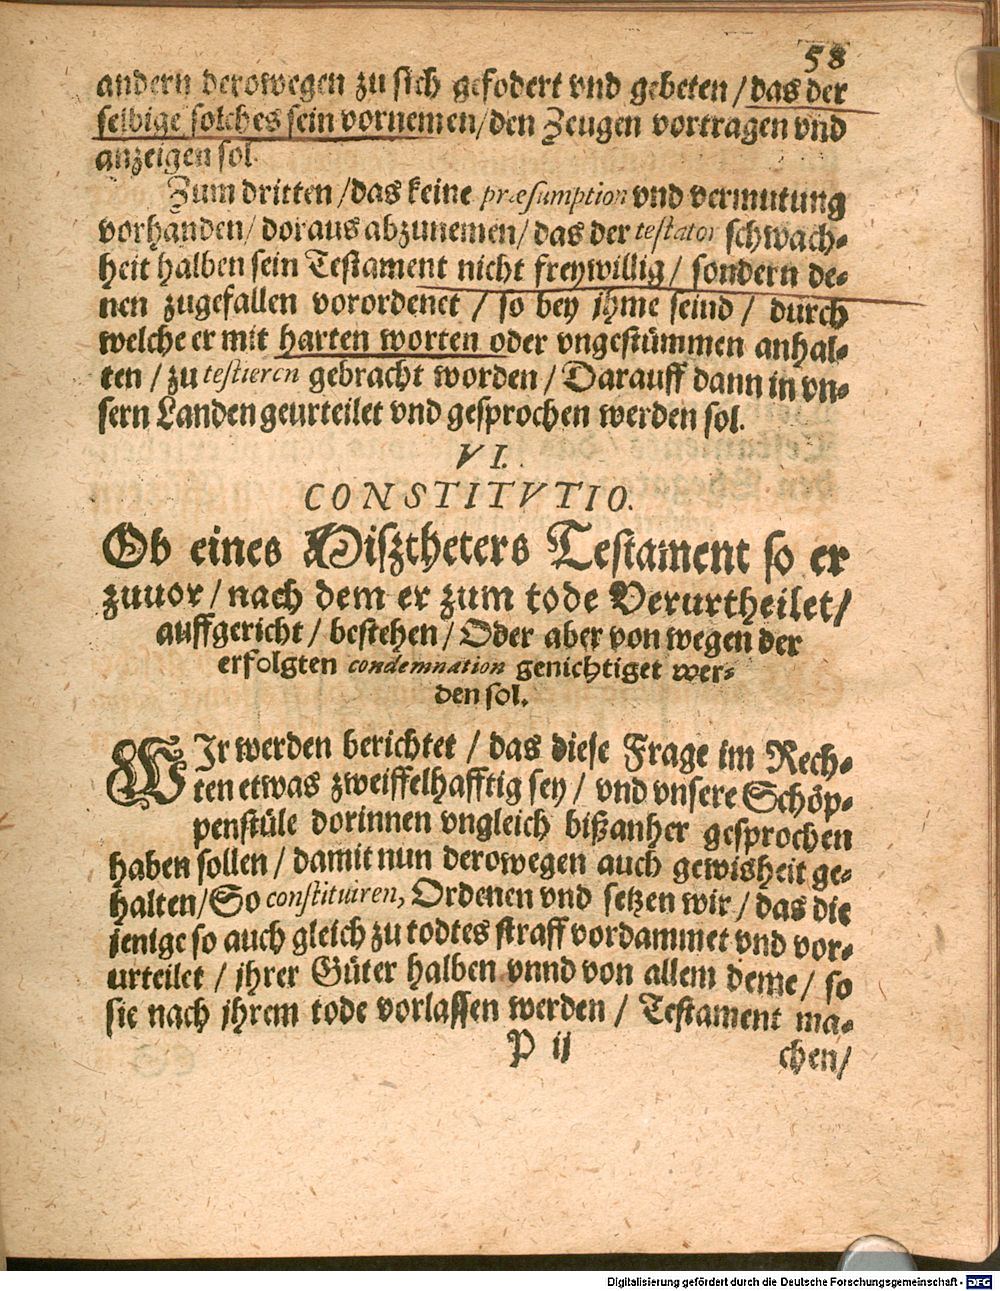 58
andern derowegen zu sich gefodert vnd gebeten / das der
selbige solches sein vornemen / den Zeugen vortragen vnd
anzeigen sol.
Zum dritten / das keine præsumption vnd vermutung
vorhanden / doraus abzunemen / das der testator schwach-
heit halben sein Testament nicht freywillig / sondern de-
nen zugefallen vorordenet / so bey jhme seind / durch
welche er mit harten worten oder vngestümmen anhal-
ten / zu testieren gebracht worden / Darauff dann in vn-
sern Landen geurteilet vnd gesprochen werden sol.
VI.
CONSTITVTIO.
Ob eines Misztheters Testament so er
zuuor / nach dem er zum tode Verurtheilet /
auffgericht / bestehen / Oder aber von wegen der
erfolgten condemnation genichtiget wer-
den sol.
WIr werden berichtet / das diese Frage im Rech-
ten etwas zweiffelhafftig sey / vnd vnsere Schöp-
penstüle dorinnen vngleich bißanher gesprochen
haben sollen / damit nun derowegen auch gewisheit ge-
halten / So constituiren, Ordenen vnd setzen wir / das die
jenige so auch gleich zu todtes straff vordammet vnd vor-
urteilet / jhrer Güter halben vnnd von allem deme / so
sie nach jhrem tode vorlassen werden / Testament ma-
P ij
chen /
Digitalisierung gefördert durch die Deutsche Forschungsgemeinschaft - DFG